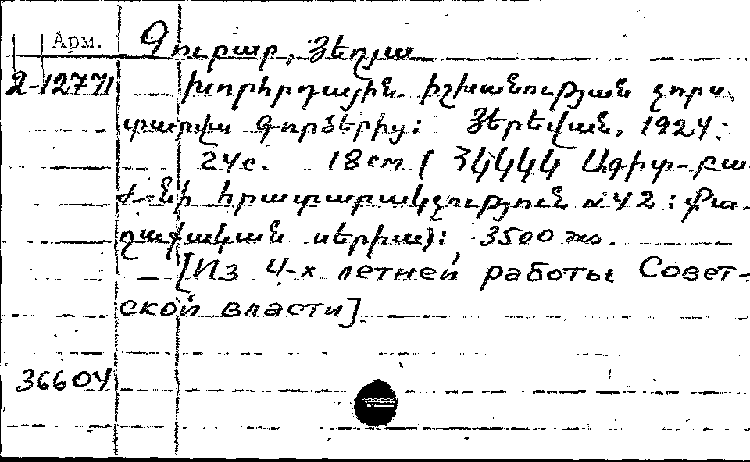 Арм.
Գուրար, Յեղյա
2-12771 Խորհրդային իշխանության չորս
տարվա գործերից: Յերեվան, 1924:
24с. 18см ( ՀԿԿԿԿ Ագիտ-բա-
ժ-նի հրատարակչություն № 42: Քա-
ղաքական սերիա): 3500 экз.
[Из 4-х летней работы Совет-
ской власти]
36604